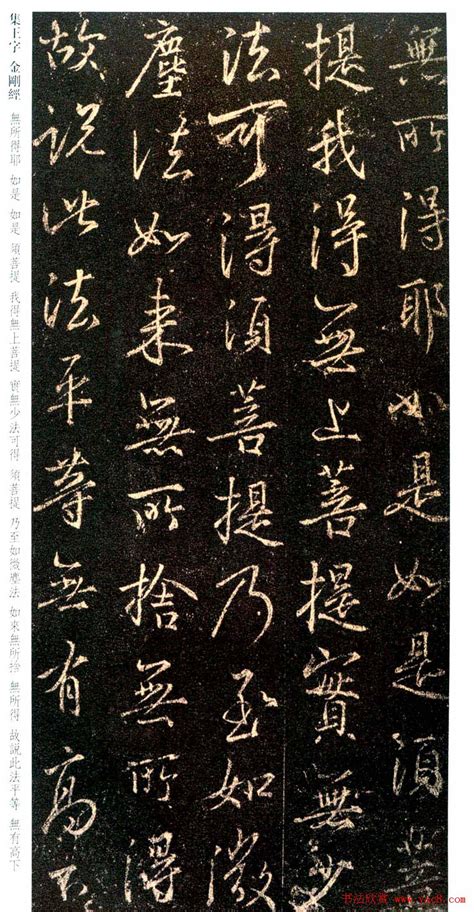 無所得耶如是如是須菩
提我得無上菩提實無少
法可得須菩提乃至如微
塵法如來無所捨無所得
故說此法平等無有高下
集王字 金剛經 無所得耶 如是 如是 須菩提 我得無上菩提 實無少法可得 須菩提 乃至如微塵法 如來無所捨 無所得 故說此法平等 無有高下
书法欣赏 www.yac8.com